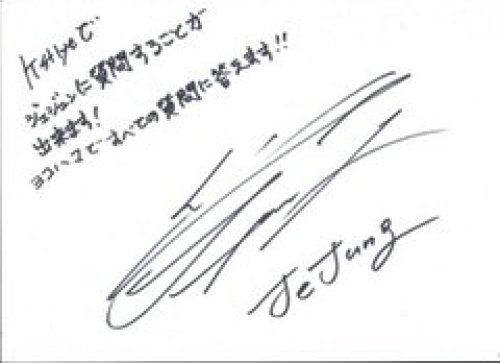 ジェジュンに質問することが
出来ます!
ヨコハマですべての質問に答えます!!
JeJung